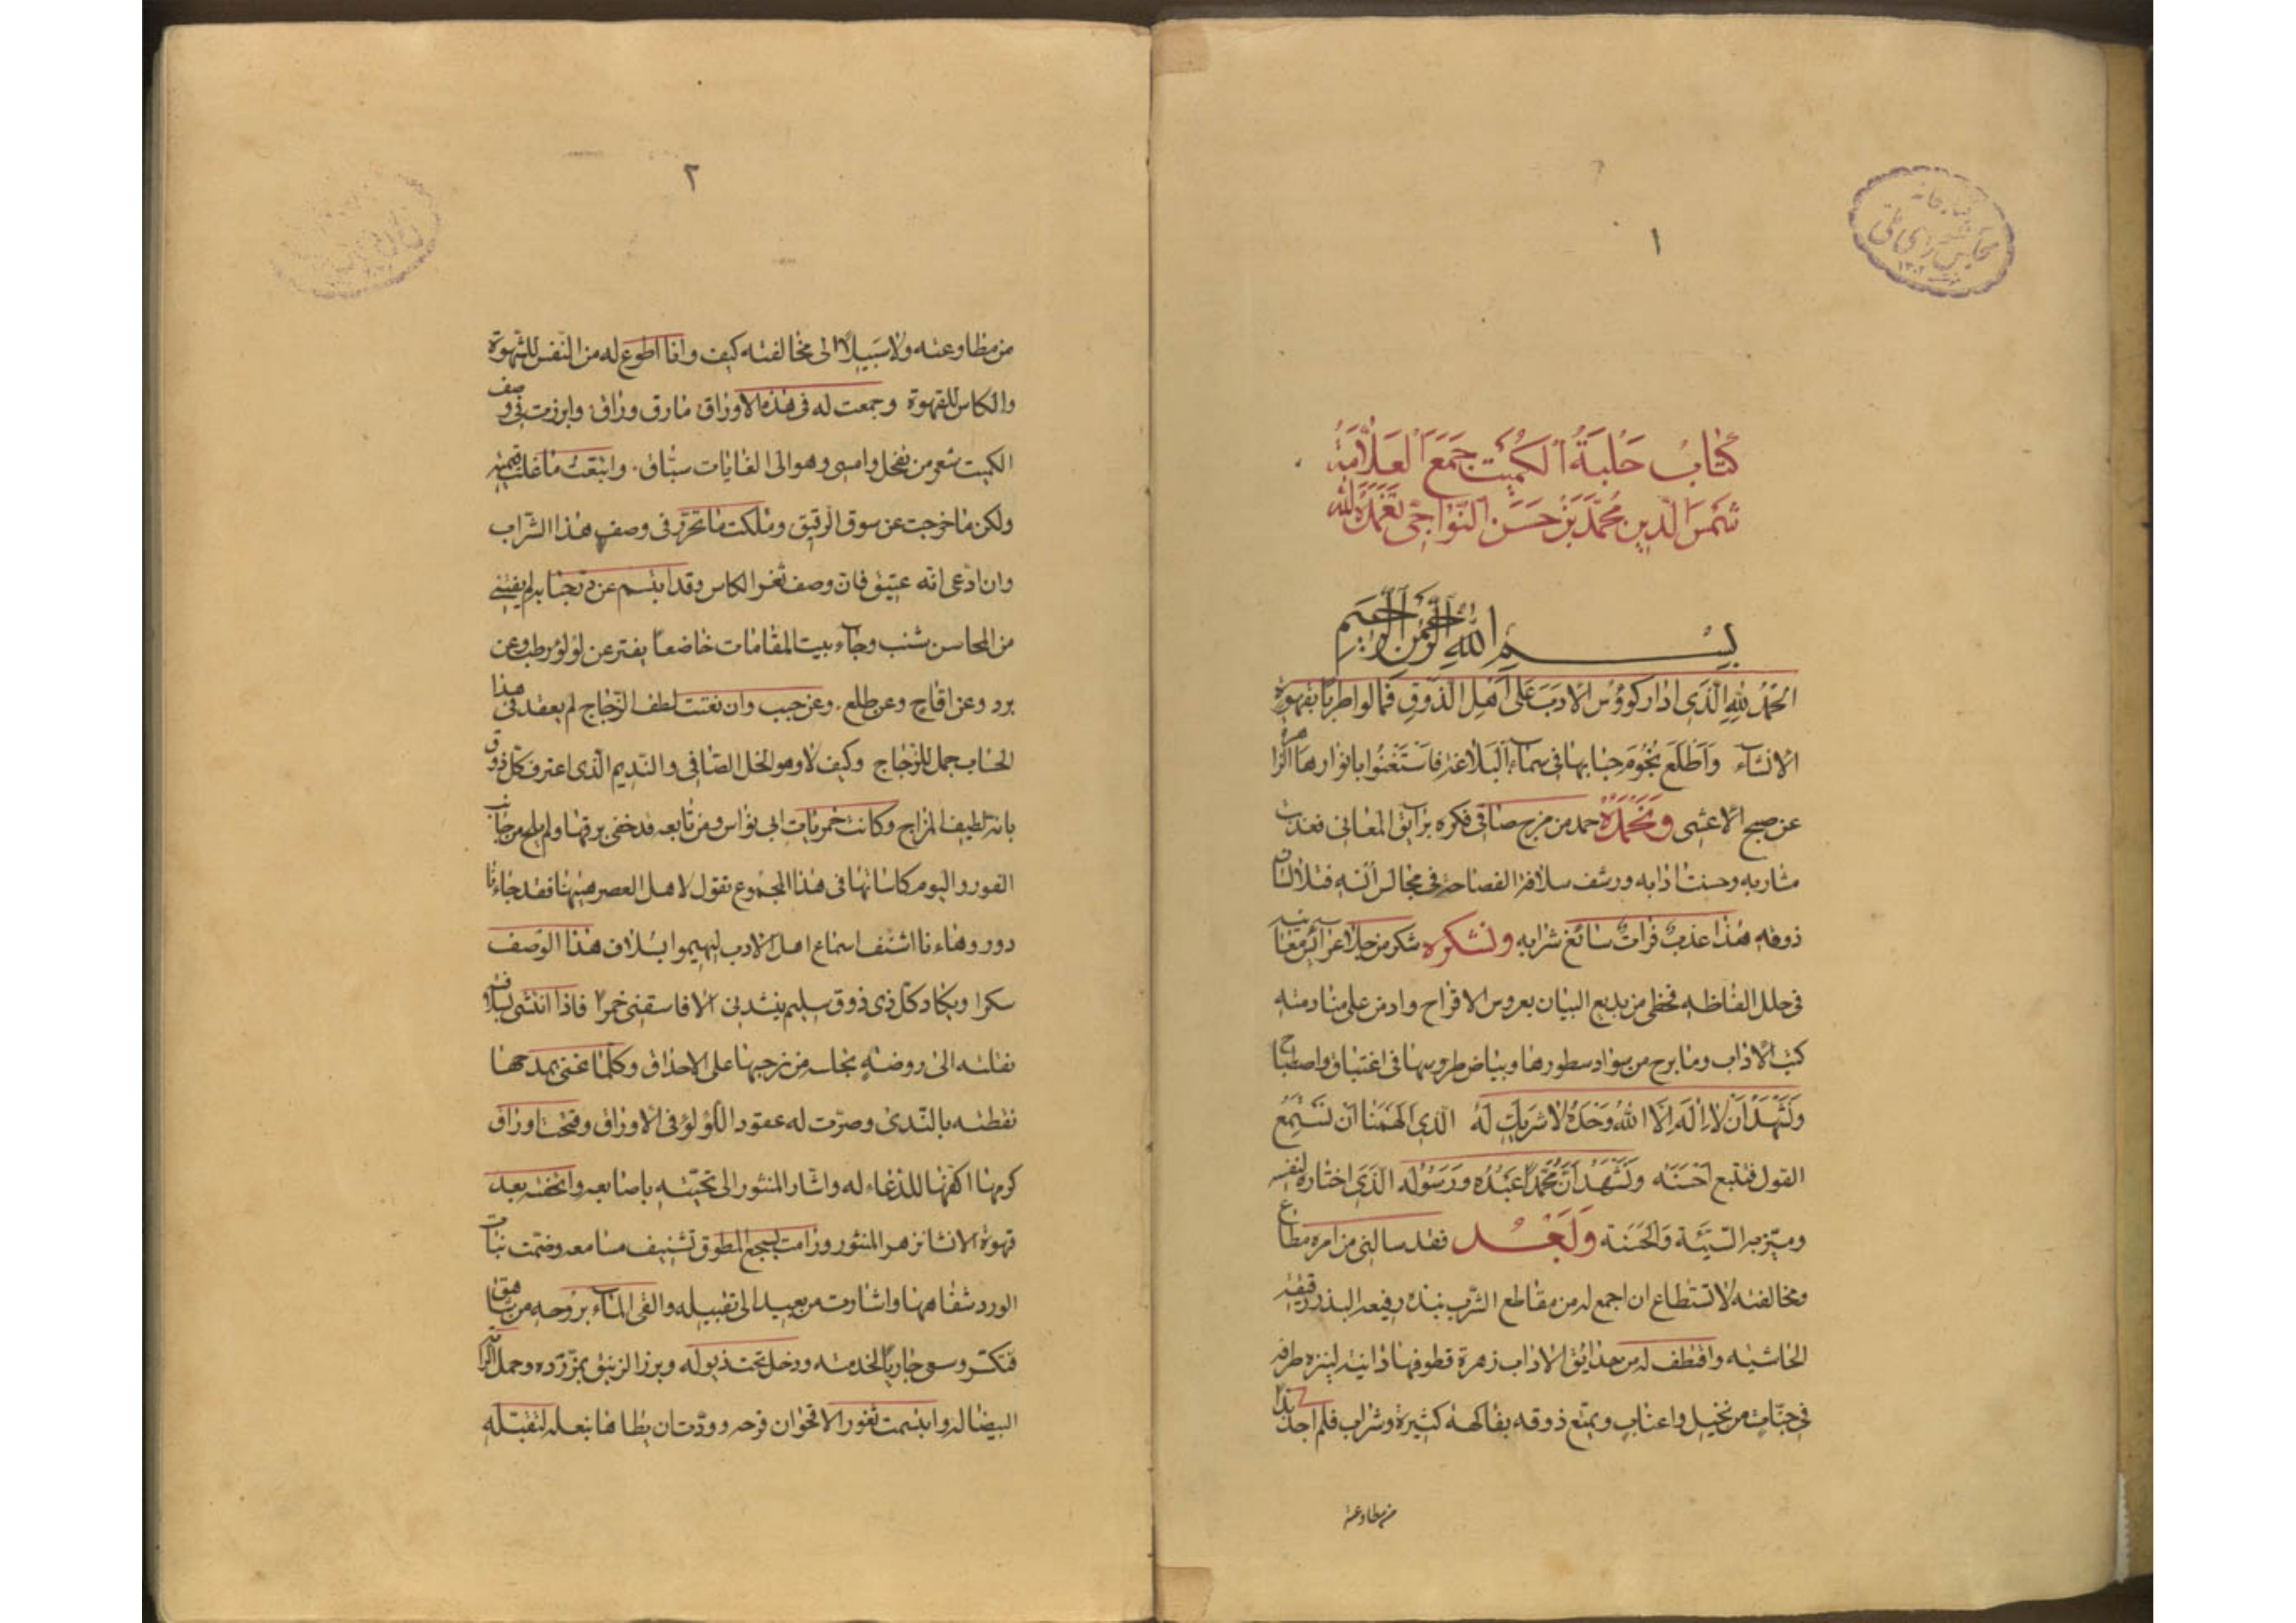 ١
كتاب حلبة الكميت جمع العلامة
شمس الدين محمد بن حسن النواجي تغمده الله
بسم الله الرحمن الرحيم
الحمد لله الذي ادار كؤوس الادب على اهل الذوق فمالوا طربا بقهوة
الانشاء واطلع نجوم حبابها في سماء البلاغة فاستغنوا بانوارها الزاهرة
عن صبح الاعشى ونحمده حمد من مزج صافي فكره برايق المعاني فعذبت
مشاربه وحسنت ادابه ورشف سلافة الفصاحة في مجالس انسه فتلا لسان
ذوقه هذا عذب فرات سائغ شرابه ونشكره شكر من جلا عرائس معانيه
في حلل الفاظه فحظى من بديع البيان بعروس الافراح وادمن على منادمته
كتب الاداب وما برح من سواد سطورها وبياض طروسها في اغتباق واصطباح
ونشهد ان لا اله الا الله وحده لا شريك له الذي الهمنا ان نستمع
القول فنتبع احسنه ونشهد ان محمدا عبده ورسوله الذي اختاره لنفسه
وميز به السيئة والحسنة وبعد فقد سالني من امره مطاع
ومخالفته لا تستطاع ان اجمع له من مقاطع الشرب نبذة رفيعة البذر رقيقة
الحاشيه واقطف له من حدايق الاداب زهرة قطوفها دانية لينزه طرفه
في جنات من نخيل واعناب ويمتع ذوقه بفاكهة كثيرة وشراب فلم اجد بدا
من مطاوعته
٢
من مطاوعته ولا سبيلا الى مخالفته كيف وانا اطوع له من النفس للشهوة
والكاس للقهوة وجمعت له في هذه الاوراق ما رق وراق وابرزت في وصف
الكميت شعر من فحل وامسى وهو الى الغايات سباق وابتعت ما غلت قيمته
ولكن ما خرجت عن سوق الرقيق وملكت ما تحرر في وصف هذا الشراب
وان ادعى انه عتيق فان وصف ثغر الكاس وقد ابتسم عن در حبابه لم يفتني
من المحاسن شنب وجاء بيت المقامات خاضعا يفتر عن لؤلؤ رطب وعن
برد وعن اقاح وعن طلع وعن حبب وان نعتت لطف الزجاج لم يعقد في هذا
الحساب جمل للزجاج وكيف لا وهو الخل الصافي والنديم الذي اعترف كل ذي ذوق
بانه لطيف المزاج وكانت خمريات ابي نواس ومن تابعه قد خفى برقها ولم يلح من جانب
الغور واليوم كاساتها في هذا المجموع تقول لاهل العصر هيهنا فقد جاءنا
دور وهاءنا اشنف اسماع اهل الادب ليهيموا بسلاف هذا الوصف
سكرا ويكاد كل ذي ذوق سليم ينشدني الا فاسقني خمرا فاذا انتشى بسلافته
نقلته الى روضة نجلسه من نرجسها على الاحداق وكلما غنى بمدحها
نقطته بالندى وصرت له عقود اللؤلؤ في الاوراق وفتحت اوراق
كرمها اكفها للدعاء له واشار المنثور الى تحيته باصابعه واتحفته بعد
قهوة الانشا بزهر المنثور ورامت بسجع المطوق تشنيف مسامعه وضمت نبات
الورد شفاهها واشارت من بعيد الى تقبيله والقى الماء بروحه من شاهق
فتكسر وسعى جاريا لخدمته ودخل تحت ذيوله وبرز الزنبق بمزرده وحمل الراية
البيضا له وابتسمت ثغور الاقحوان فرحه وودت ان يطاها بنعله لتقبله